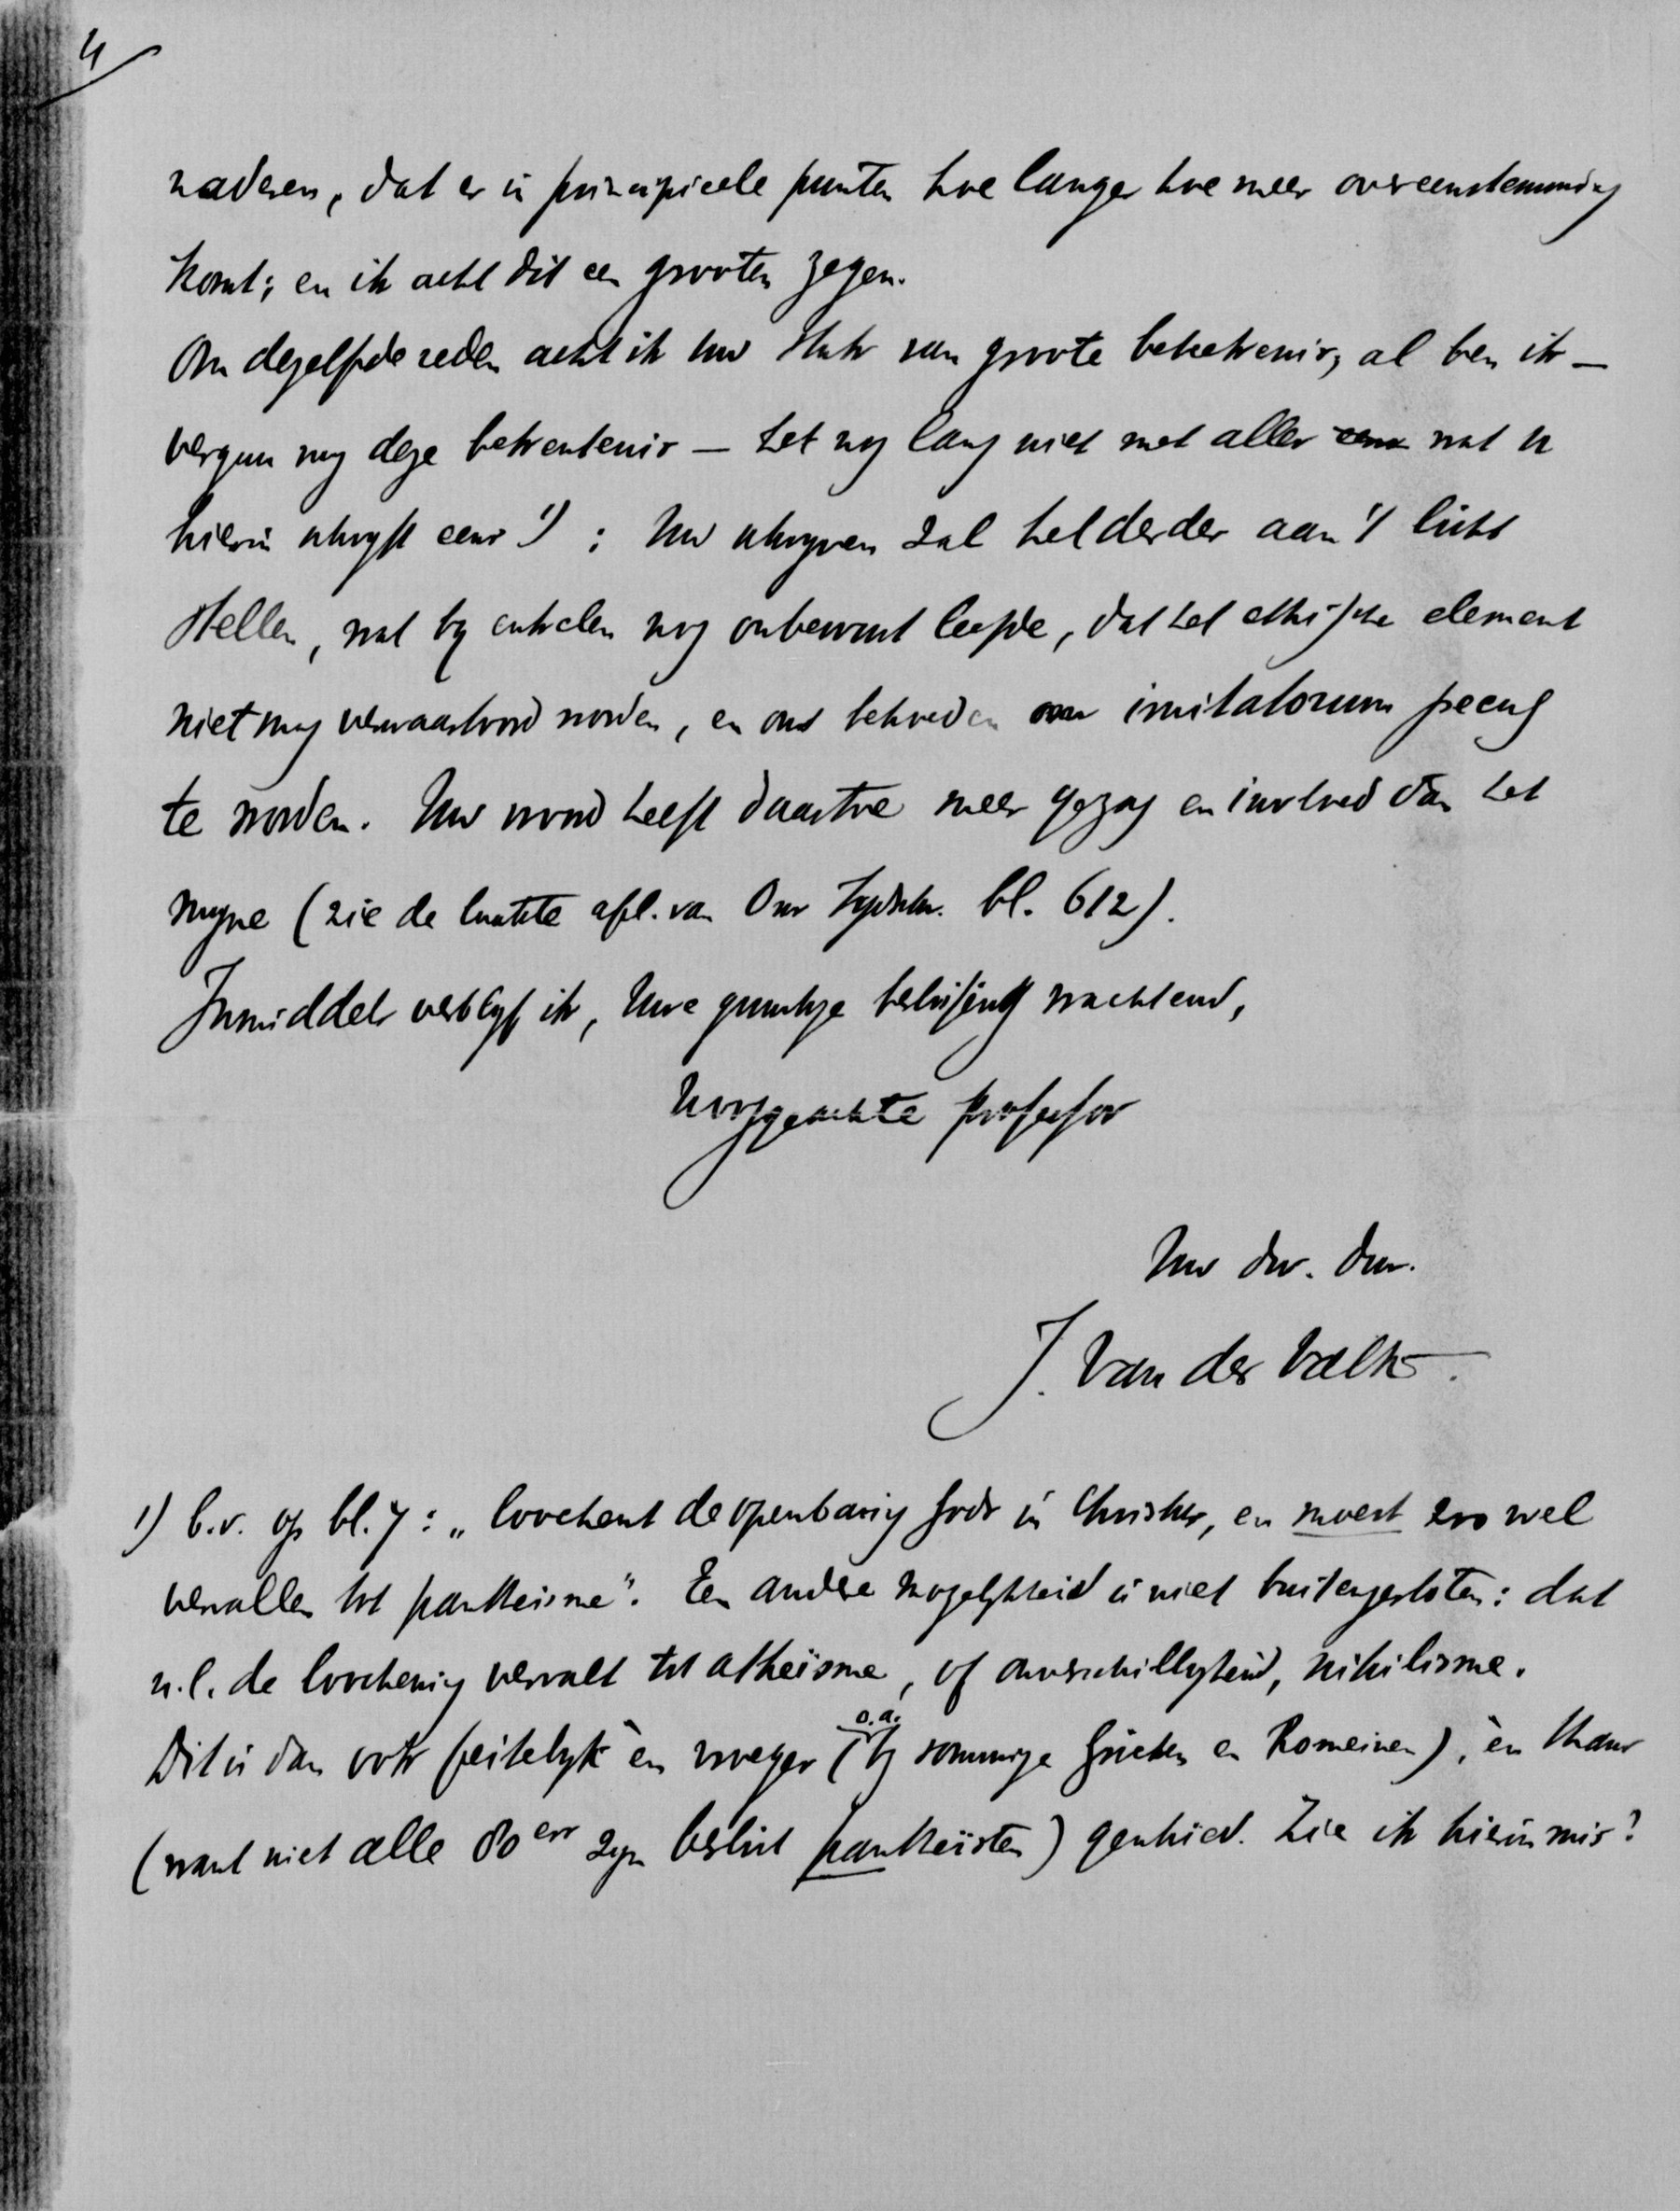 4
naderen, dat er in principieele punten hoe langer hoe meer overeenstemming
komt; en ik acht dit een grooten zegen.
Om dezelfde reden acht ik Uw stuk van groote beteekenis, al ben ik —
vergun mij deze bekentenis — het nog lang niet met alles wat U
hierin schrijft eens 1) : Uw schrijven zal helderder aan 't licht
stellen, wat bij enkelen nog onbewust leefde, dat het ethische element
niet mag verwaarloosd worden, en ons behoeden imitatorum pecus
te worden. Uw woord heeft daartoe meer gezag en invloed dan het
mijne (zie de laatste afl. van Ons Tijdschr. bl. 612).
Inmiddels verblijf ik, Uwe gunstige beslissing wachtend,
Hooggeachte professor
Uw dw. dnr.
J. van der Valk.
1) b.v. op bl. 7: „loochent de openbaring Gods in Christus, en moest zoo wel
vervallen tot pantheisme". Een andere mogelijkheid is niet buitengesloten: dat
n.l. de loochening vervalt tot atheïsme, of onverschilligheid, nihilisme.
Dit is dan ook feitelijk èn vroeger (o.a. bij sommige Grieken en Romeinen), èn thans
(want niet alle 80ers zijn beslist pantheïsten) geschied. Zie ik hierin mis?